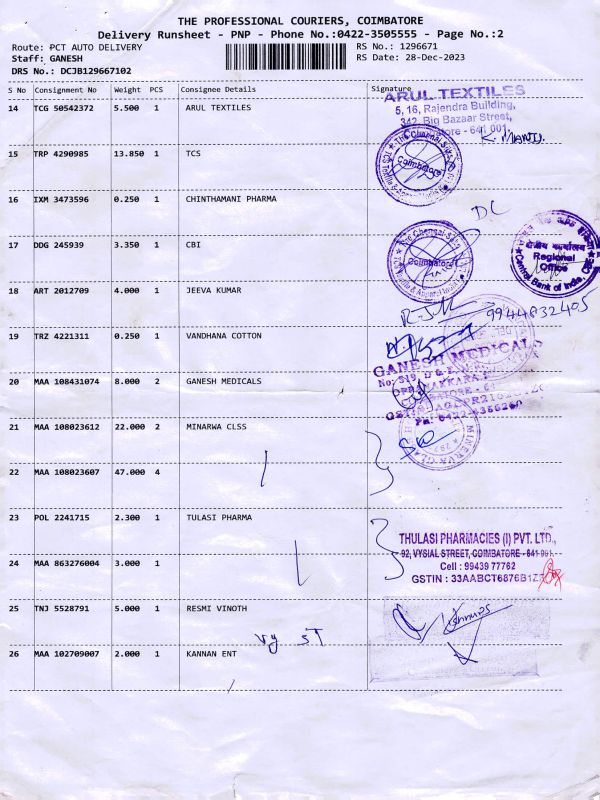 THE PROFESSIONAL COURIERS, COIMBATORE
Delivery Runsheet - PNP - Phone No.:0422-3505555 - Page No.:2
Route: PCT AUTO DELIVERY
RS No.: 1296671
Staff: GANESH
RS Date: 28-Dec-2023
DRS No.: DCJB129667102
S No Consignment No Weight PCS Consignee Details Signature
14 TCG 50542372 5.500 1 ARUL TEXTILES
ARUL TEXTILES
5, 16, Rajendra Building,
342, Big Bazaar Street,
641 001.
15 TRP 4290985 13.850 1 TCS
Coimbatore
16 IXM 3473596 0.250 1 CHINTHAMANI PHARMA
DC
17 DDG 245939 3.350 1 CBI
Coimbatore
क्षेत्रीय कार्यालय
Regional
Office
Central Bank of India, CBE
18 ART 2012709 4.000 1 JEEVA KUMAR
9944832405
19 TRZ 4221311 0.250 1 VANDHANA COTTON
GANESH MEDICALS
20 MAA 108431074 8.000 2 GANESH MEDICALS
21 MAA 108023612 22.000 2 MINARWA CLSS
22 MAA 108023607 47.000 4
23 POL 2241715 2.300 1 TULASI PHARMA
THULASI PHARMACIES (I) PVT. LTD.,
92, VYSIAL STREET, COIMBATORE - 641 001.
24 MAA 863276004 3.000 1
Cell : 99439 77762
GSTIN : 33AABCT6876B1Z
25 TNJ 5528791 5.000 1 RESMI VINOTH
vy ST
26 MAA 102709007 2.000 1 KANNAN ENT